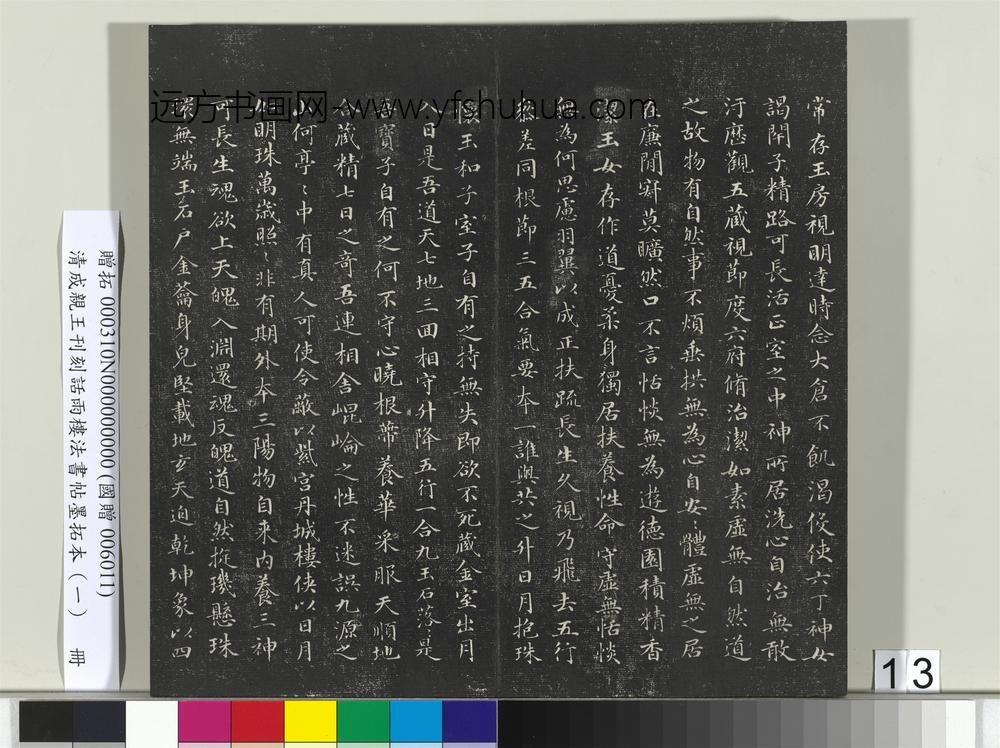 常存玉房視明達時念大倉不飢渴伇使六丁神女
謁閇子精路可長活正室之中神所居洗心自治無敢
汙歷觀五藏視節度六府脩治潔如素虛無自然道
之故物有自然事不煩垂拱無為心自安〻體虛無之居
在廉閒寂莫曠然口不言恬惔無為遊德園積精香
潔玉女存作道憂柔身獨居扶養性命守虛無恬惔
無為何思慮羽翼以成正扶疏長生久視乃飛去五行
參差同根節三五合氣要本一誰與共之升日月抱珠
懷玉和子室子自有之持無失即欲不死藏金室出月
入日是吾道天七地三回相守升降五行一合九玉石落〻是
吾寶子自有之何不守心曉根蔕養華采服天順地
合藏精七日之奇吾連相舍崐崘之性不迷誤九源之
山何亭〻中有真人可使令蔽以紫宮丹城樓俠以日月
如明珠萬歲照〻非有期外本三陽物自來內養三神
可長生魂欲上天魄入淵還魂反魄道自然㨁璣懸珠
環無端玉石戶金籥身皃堅載地玄天迫乾坤象以四
贈拓 000310N000000000 (國贈 006011)
清成親王刊刻詒晉樓法書帖墨拓本 (一) 冊
13
远方书画网-www.yfshuhua.com